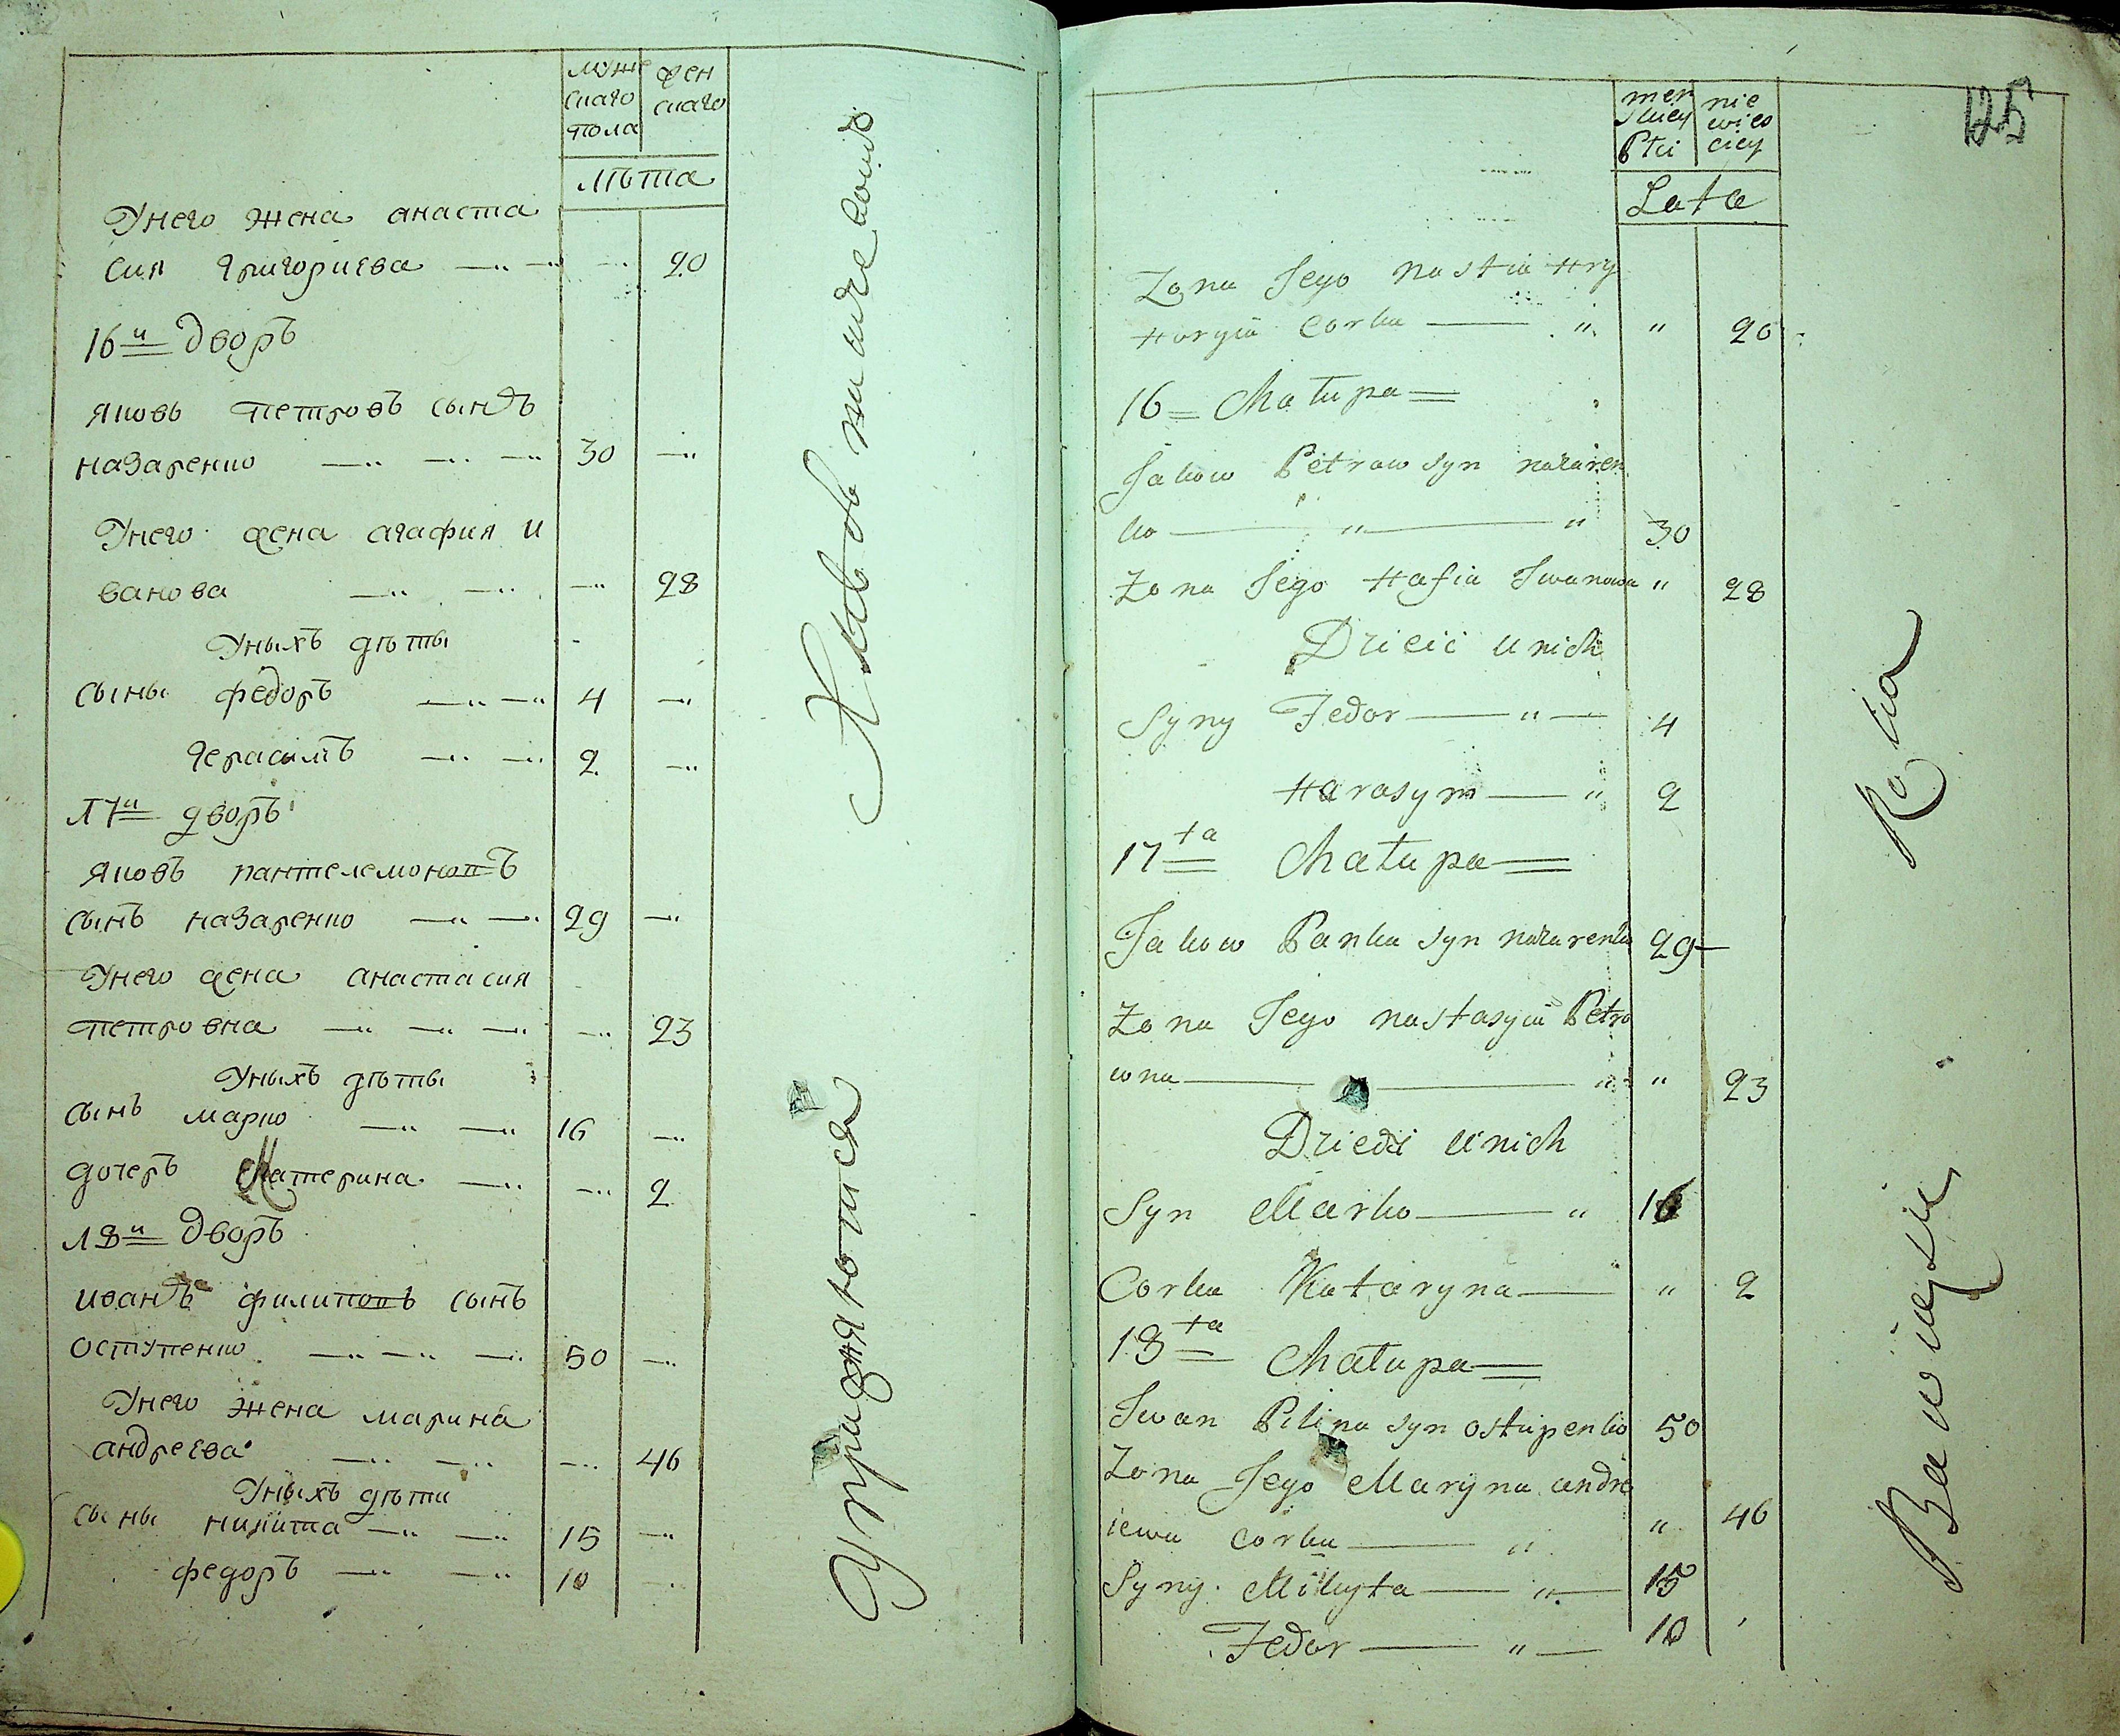 муже
скаго
пола
жен
скаго
лѣта
Унего жена анаста
сия григориева 20
16й дворъ
яковъ петровъ сынъ
назаренко 30
Унего жена агафия и
ванова 28
Уныхъ дѣты
сыны федоръ 4
герасимъ 2
17й дворъ
яковъ пантелемоновъ
сынъ назаренко 29
Унего жена анастасия
петровна 23
Уныхъ дѣты
сынъ марко 16
дочеръ Катерина 2
18й дворъ
иванъ филиповъ сынъ
оступенко 50
Унего жена марина
андреева 46
Уныхъ дѣти
сыны никита 15
федоръ 10
Упражняютися
125
męz
skiey
Płci
nie
wies
ciey
Lata
Zona Jego nastia Hry
Horyia Corka " " 20
16 Chałupa
Jakow Petrow syn nazaren
ko " " 30
Zona Jego Hafia Iwanowa " 28
Dzieci u nich
Syny Fedor " 4
Harasym " 2
17ta Chałupa
Jakow Panka syn nazarenko 29
Zona Jego nastasyia Petro
wna " " 23
Dzieci u nich
Syn Marko " 16
Corka Kataryna " 2
18ta Chałupa
Iwan Pilipa syn ostupenko 50
Zona Jego Maryna andre
iewa corka " " 46
Syny Mikyta " 15
Fedor " 10
Bawiąsię
Rolia